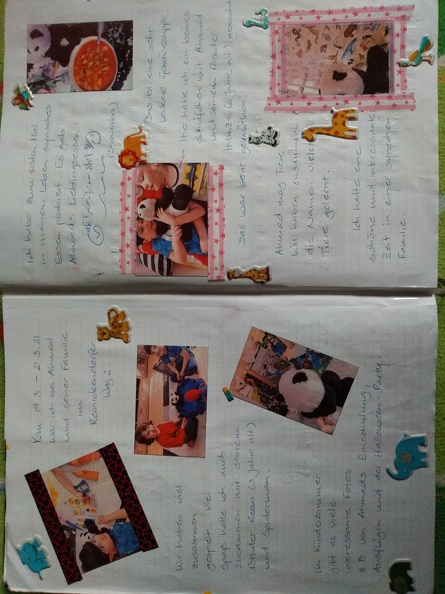 Vom 19.3. - 21.3.21
war ich bei Ahmad
und seiner Familie
im
Reinickendorfer
Weg 2
Wir haben viel
zusammen
gespielt. Viel
Spaß hatte ich auch
zusammen mit seinem
Bruder
und Spiderman.
Im Kinderzimmer
gibt es viele
interessante Fotos
z.B. von Ahmads Einschulung,
Ausflügen und der Halloween-Party.
Ich habe zum ersten Mal
in meinem Leben syrisches
Essen probiert. Es gab
Ahmads Lieblingsessen.
Das ist eine sehr
leckere Gemüsesuppe
Hier habe ich ein kleines
mit Ahmad
und seinem Bruder
gemacht
Das war sehr gemütlich.
Ahmad mag Tiere.
Wir haben zusammen
die Namen vieler
Tiere gelernt.
Ich hatte eine
schöne und interessante
Zeit in einer syrischen
Familie.